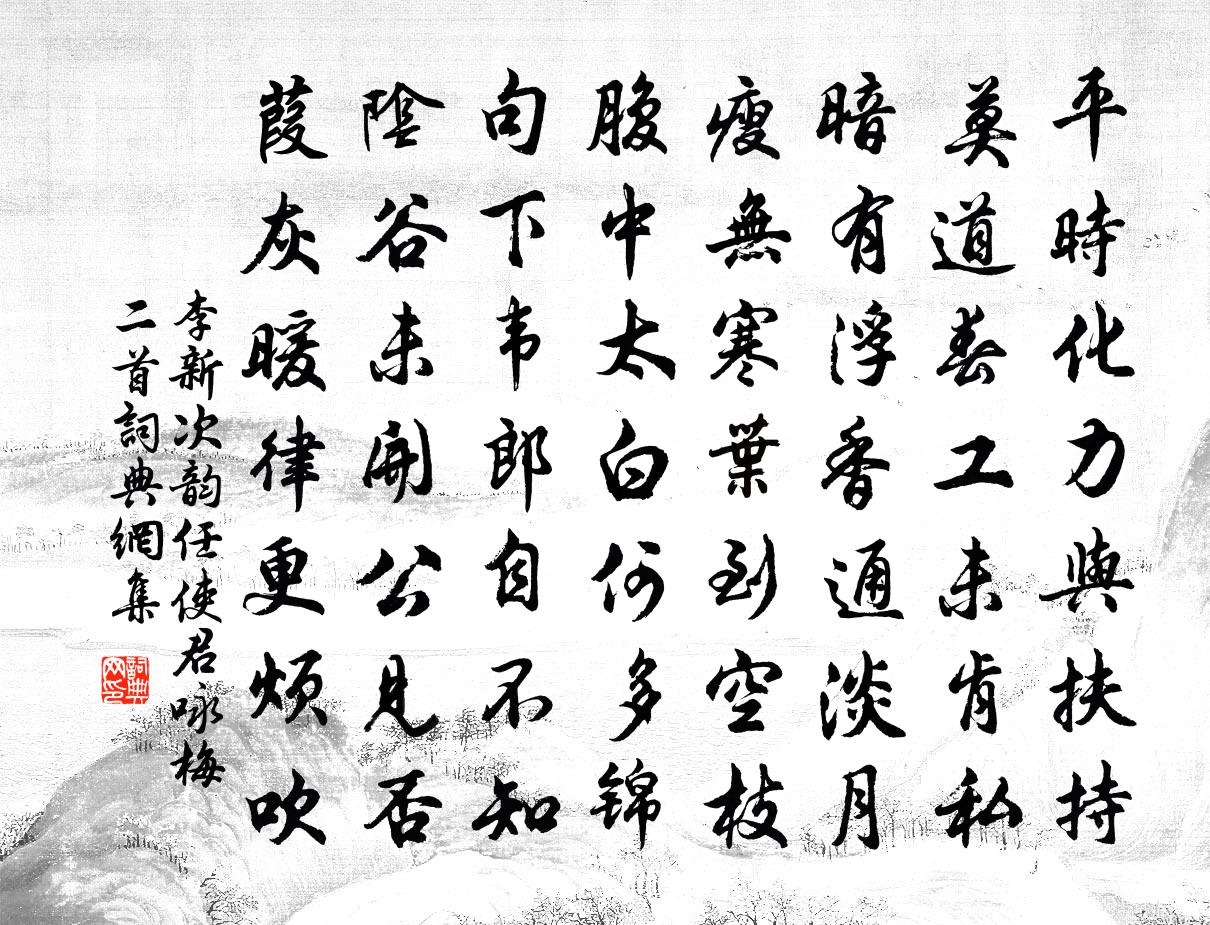 平時化力與扶持
莫道春工未肯私
暗有浮香通淡月
瘦無寒葉到空枝
腹中太白何多锦
句下韦郎自不知
陰谷未開公見否
葭灰暖律更煩吹
李新次韵任使君咏梅
二首詞典網集
詞典网印